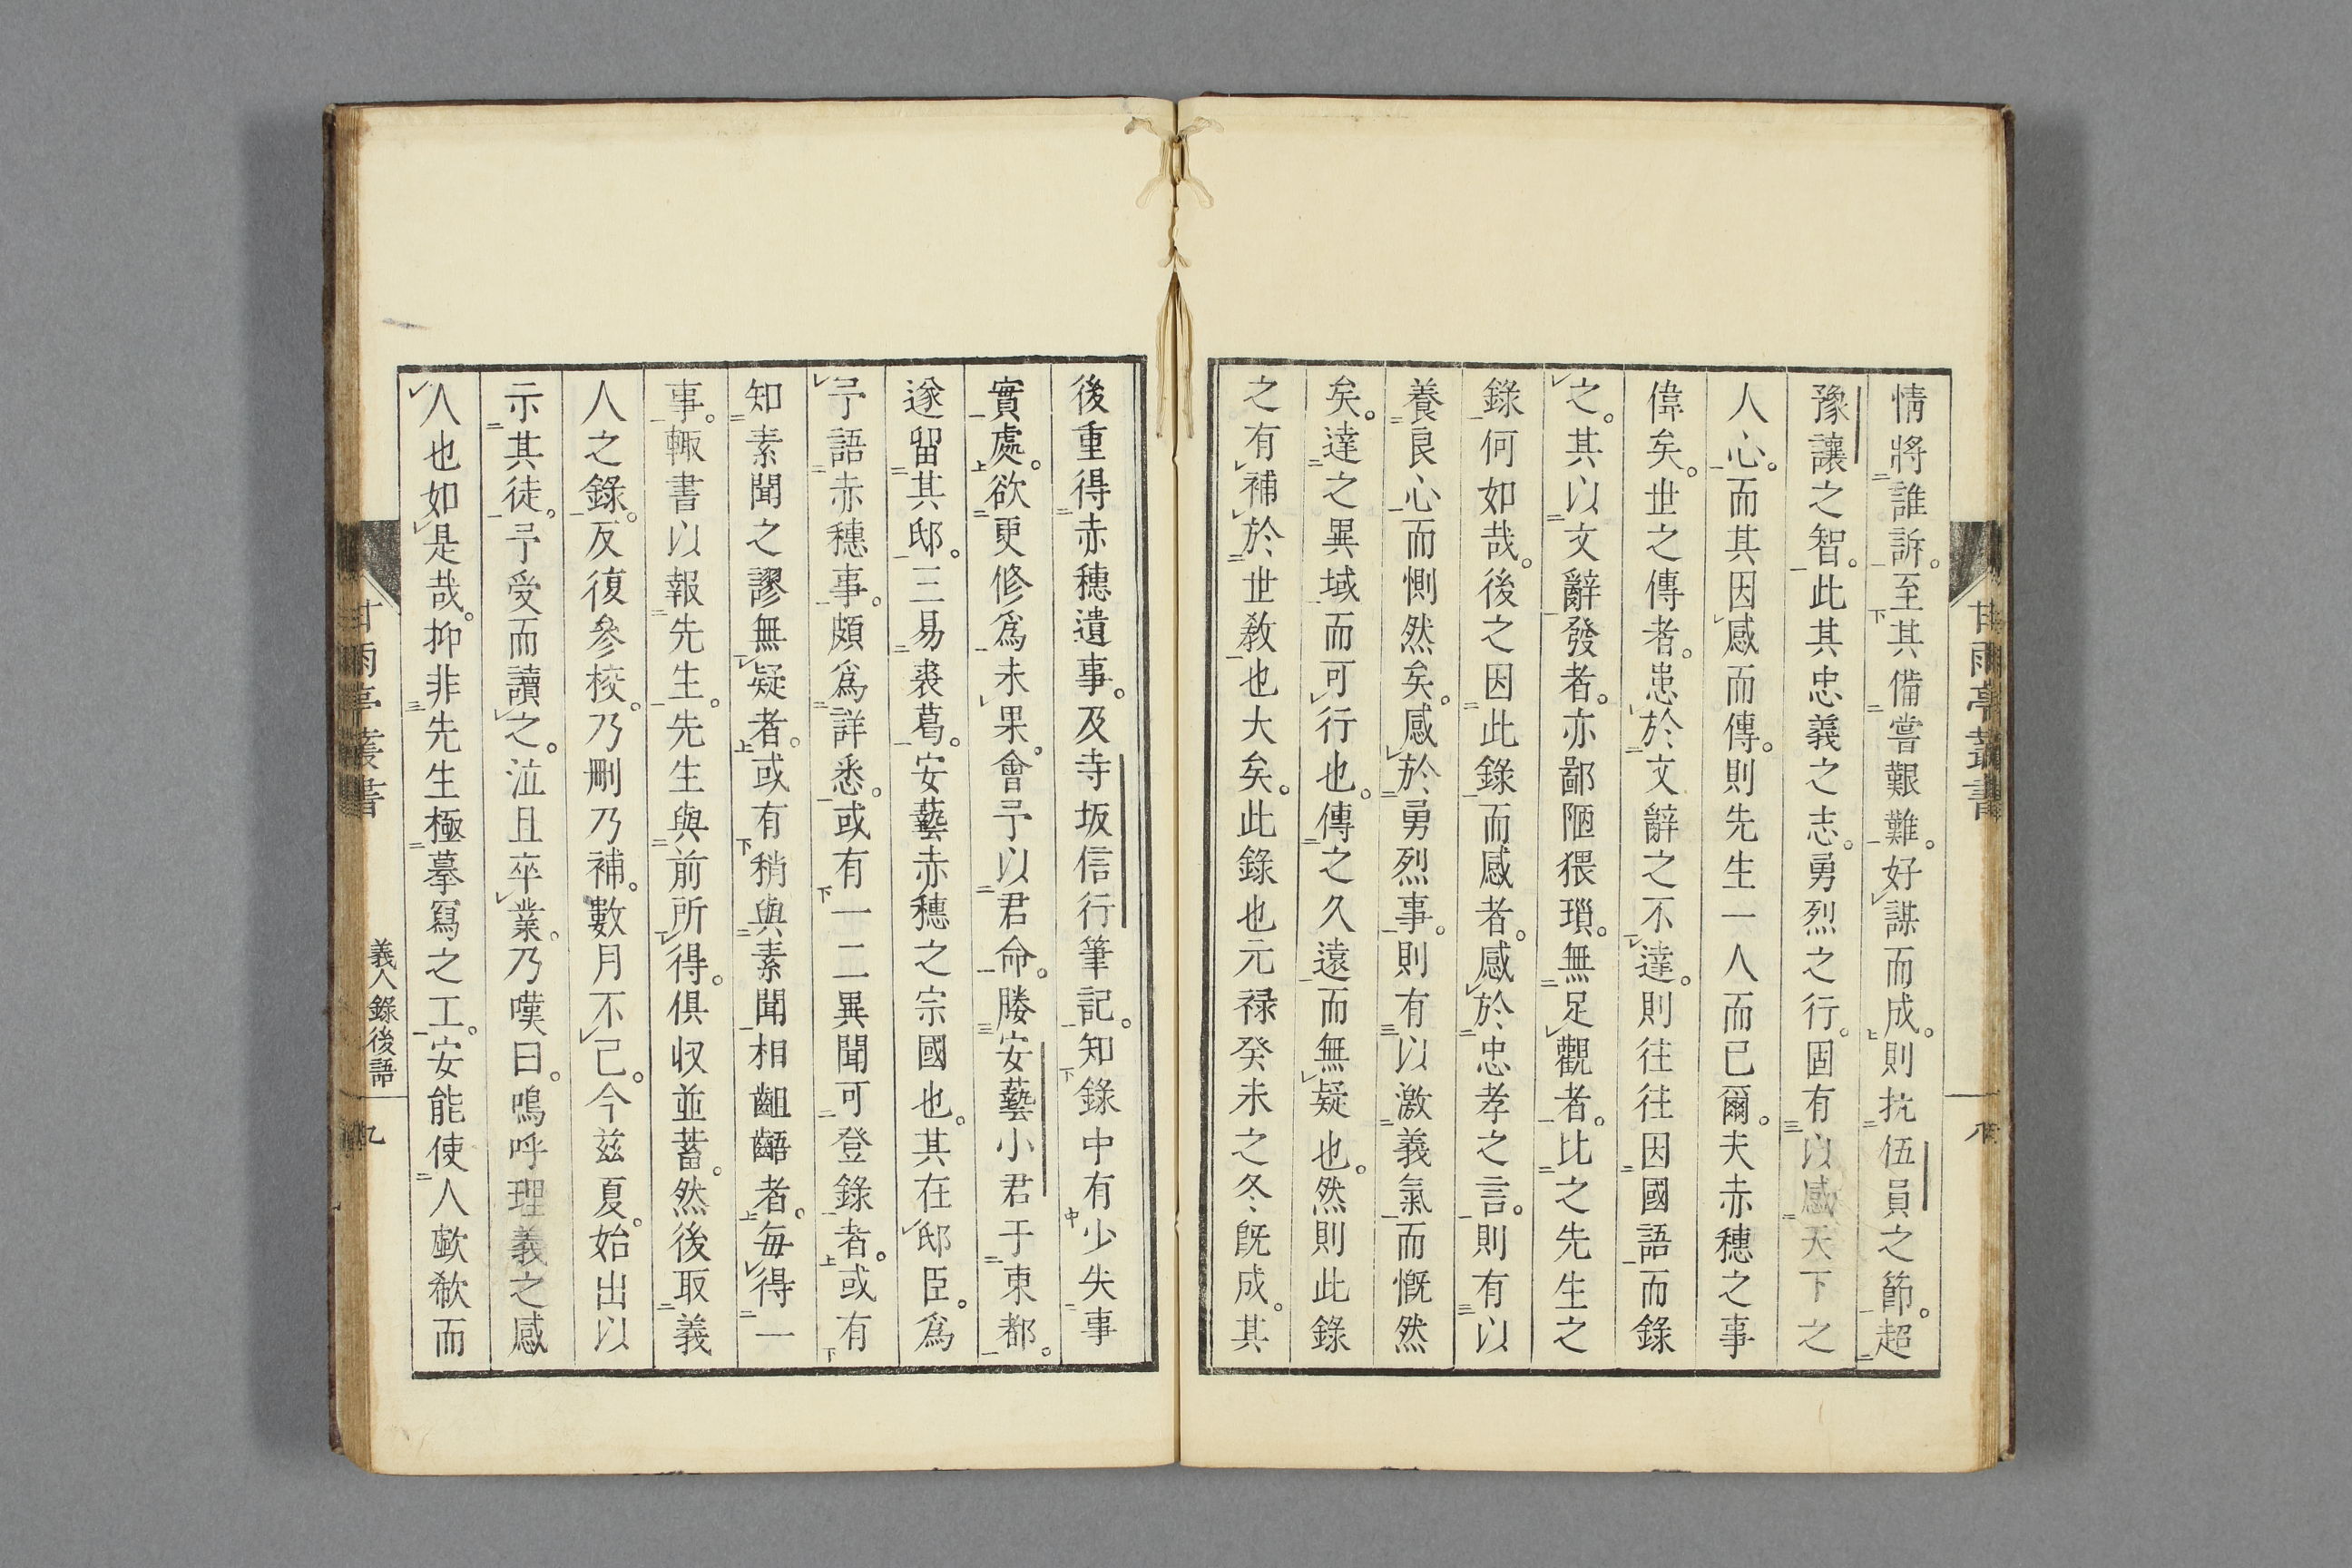 情將誰訴。至其備嘗艱難。好謀而成。則抗伍員之節。超
豫讓之智。此其忠義之志。勇烈之行。固有以感天下之
人心。而其因感而傳。則先生一人而已爾。夫赤穗之事
偉矣。世之傳者。患於文辭之不達。則往往因國語而錄
之。其以文辭發者。亦鄙陋猥瑣。無足觀者。比之先生之
錄何如哉。後之因此錄而感者。感於忠孝之言。則有以
養良心而惻然矣。感於勇烈事。則有以激義氣而慨然
矣。達之異域而可行也。傳之久遠而無疑也。然則此錄
之有補於世敎也大矣。此錄也元禄癸未之冬既成。其
甘雨亭叢書 八
後重得赤穗遺事。及寺坂信行筆記。知錄中有少失事
實處。欲更修爲未果。會予以君命。媵安藝小君于東都。
遂留其邸。三易裘葛。安藝赤穗之宗國也。其在邸臣。爲
予語赤穗事。頗爲詳悉。或有一二異聞可登錄者。或有
知素聞之謬無疑者。或有稍與素聞相齟齬者。每得一
事。輙書以報先生。先生與前所得。俱収並蓄。然後取義
人之錄。反復參校。乃刪乃補。數月不已。今兹夏。始出以
示其徒。予受而讀之。泣且卒業。乃嘆曰。嗚呼理義之感
人也如是哉。抑非先生極摹寫之工。安能使人歔欷而
甘雨亭叢書 義人錄後語 九